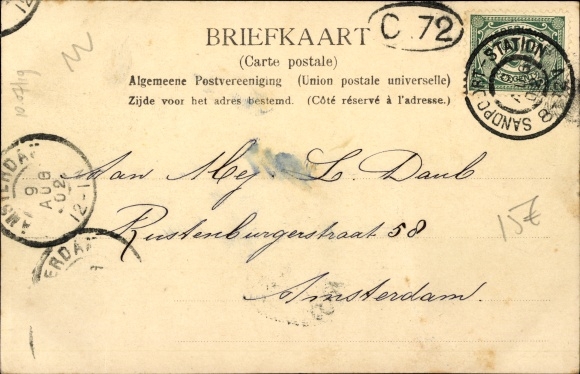 C. 72
BRIEFKAART
(Carte postale)
Algemeene Postvereeniging (Union postale universelle)
Zijde voor het adres bestemd. (Côté réservé à l'adresse.)
SANDPOORT-STATION
AMSTERDAM
9
AUG
02
12-1
ERDA
Aan Mej L. Daub
Rustenburgerstraat 58
Amsterdam.
15€